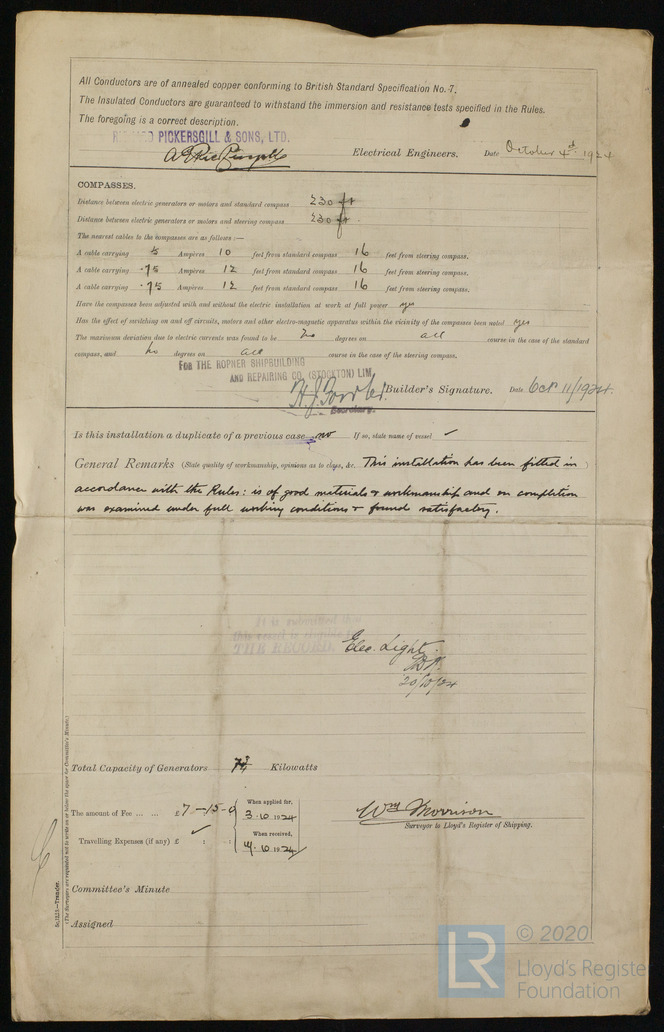 All Conductors are of annealed copper conforming to British Standard Specification No. 7.
The Insulated Conductors are guaranteed to withstand the immersion and resistance tests specified in the Rules.
The foregoing is a correct description.
PICKERSGILL & SONS, LTD.
Electrical Engineers. Date October 4th 1924
COMPASSES.
Distance between electric generators or motors and standard compass 230 ft
Distance between electric generators or motors and steering compass 230 ft.
The nearest cables to the compasses are as follows:—
A cable carrying Ampères 10 feet from standard compass 16 feet from steering compass.
A cable carrying .75 Ampères 12 feet from standard compass 16 feet from steering compass.
A cable carrying .75 Ampères 12 feet from standard compass 16 feet from steering compass.
Have the compasses been adjusted with and without the electric installation at work at full power yes
Has the effect of switching on and off circuits, motors and other electro-magnetic apparatus within the vicinity of the compasses been noted yes
The maximum deviation due to electric currents was found to be No degrees on all course in the case of the standard
compass, and No degrees on all course in the case of the steering compass.
FOR THE ROPNER SHIPBUILDING
AND REPAIRING CO. (STOCKTON) LIM.
Builder's Signature. Date Oct 11/1924.
Secretary.
Is this installation a duplicate of a previous case no If so, state name of vessel ✓
General Remarks (State quality of workmanship, opinions as to class, &c. This installation has been fitted in )
accordance with the Rules: is of good materials & workmanship and on completion
was examined under full working conditions & found satisfactory.
It is submitted that
this vessel is eligible for
THE RECORD.
Elec. Light.
20/10/24
Total Capacity of Generators Kilowatts
The amount of Fee ... ... £ 7-15-0 When applied for, 3.10.1924
Travelling Expenses (if any) £ ✓ : : When received, 4.10.1924
Wm Morrison
Surveyor to Lloyd's Register of Shipping.
Committee's Minute
Assigned
(The Surveyors are requested not to write on or below the space for Committee's Minute.)
© 2020
LR
Lloyd's Register
Foundation